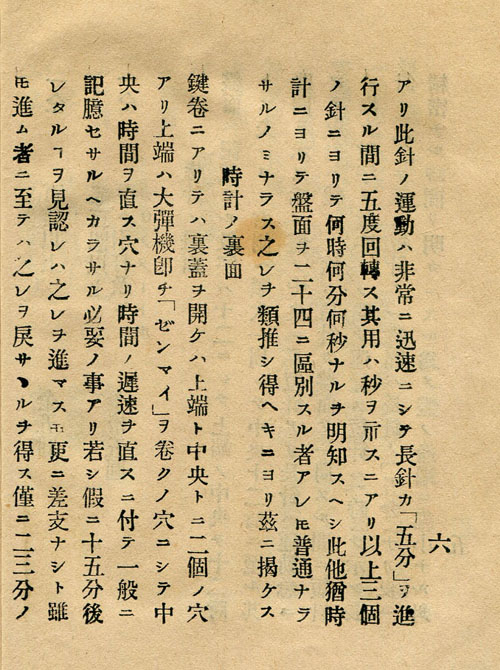 六
アリ此針ノ運動ハ非常ニ迅速ニシテ長針カ「五分」ヲ進
行スル間ニ五度回轉ス其用ハ秒ヲ示スニアリ以上三個
ノ針ニヨリテ何時何分何秒ナルヲ明知スヘシ此他猶時
計ニヨリテ盤面ヲ二十四ニ區別スル者アレ𪜈普通ナラ
サルノミナラス之レヲ類推シ得ヘキニヨリ茲ニ掲ケス
時計ノ裏面
鍵卷ニアリテハ裏蓋ヲ開ケハ上端ト中央トニ二個ノ穴
アリ上端ハ大彈機卽チ「ゼンマイ」ヲ卷クノ穴ニシテ中
央ハ時間ヲ直ス穴ナリ時間ノ遲速ヲ直スニ付テ一般ニ
記臆セサルヘカラサル必要ノ事アリ若シ假ニ十五分後
レタルヿヲ見認レハ之レヲ進マス𪜈更ニ差支ナシト雖
𪜈進ム者ニ至テハ之レヲ戻サヽルヲ得ス僅ニ二三分ノ